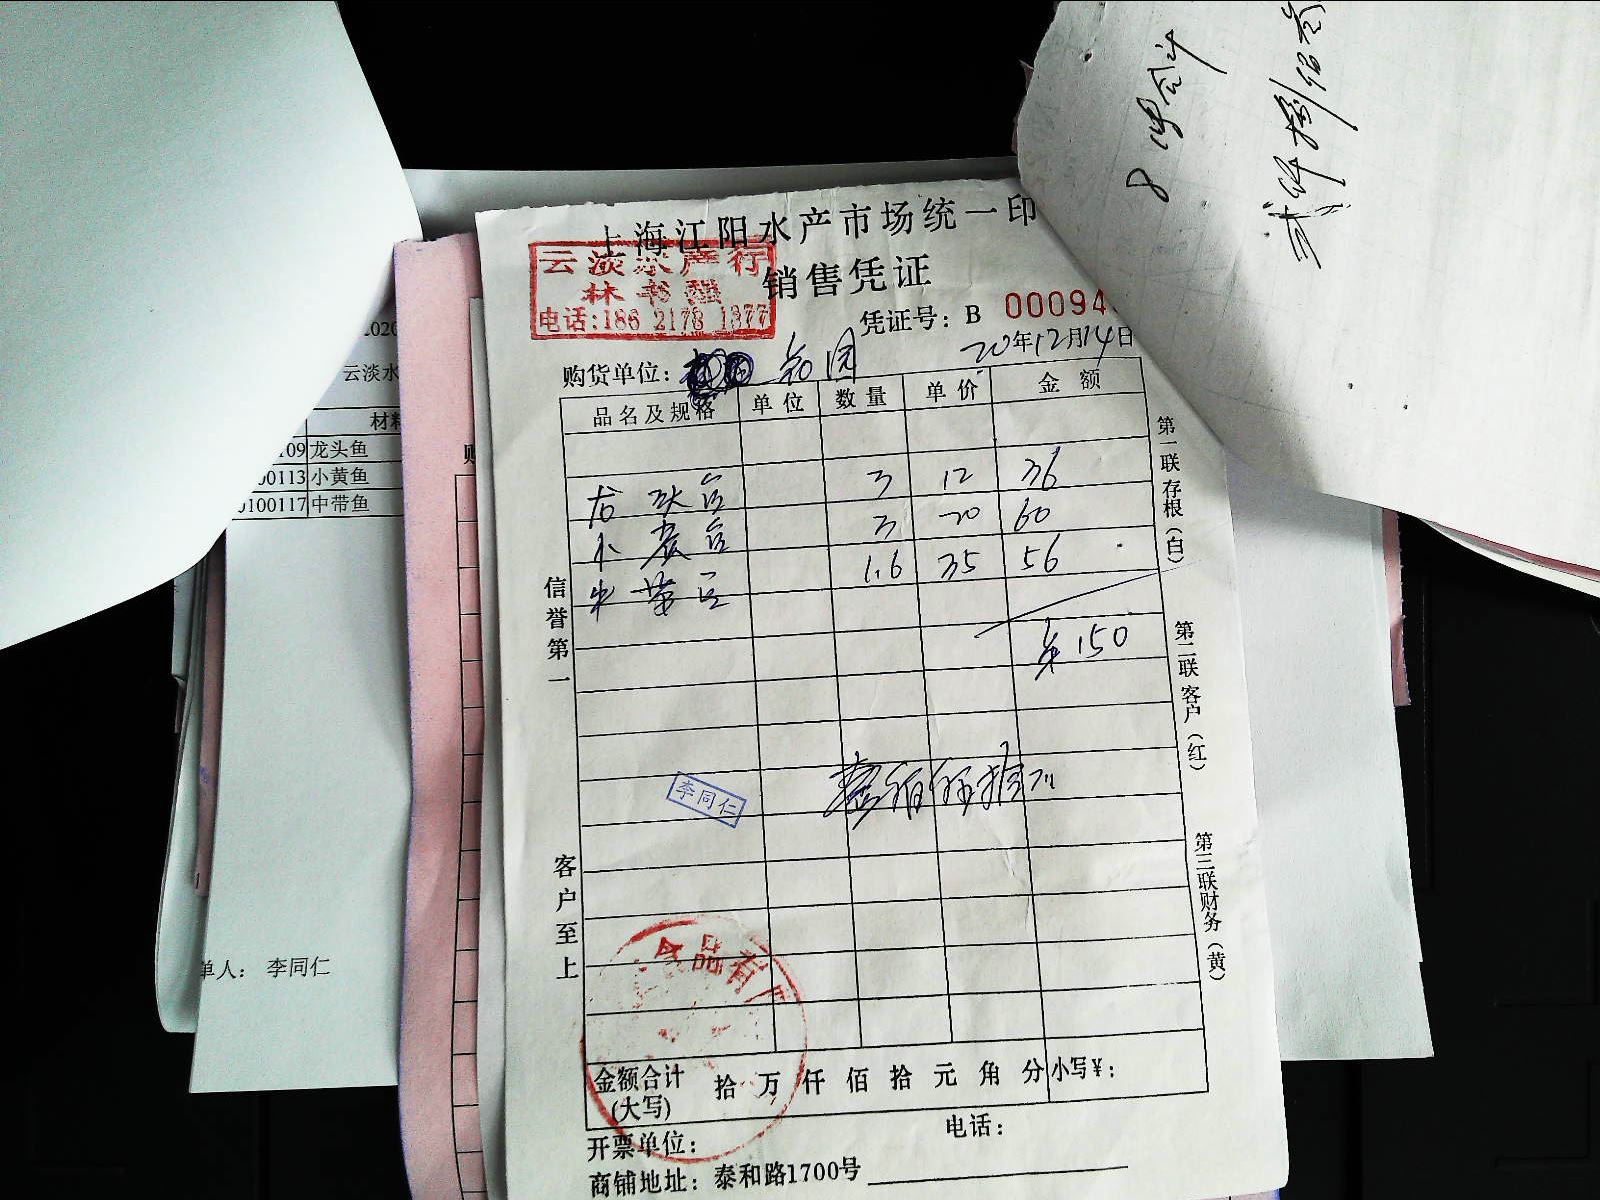 上海江阳水产市场统一印
云淡水产行
林书强
电话:186 2178 1377
销售凭证
凭证号: B 00094
20年12月14日
购货单位:
品名及规格 单位 数量 单价 金额
龙头鱼 3 12 36
小黄鱼 3 20 60
中带鱼 1.6 35 56
150
李同仁
信誉第一
客户至上
第一联存根(白)
第二联客户(红)
第三联财务(黄)
食品有
金额合计(大写) 拾 万 仟 佰 拾 元 角 分 小写¥:
开票单位: 电话:
商铺地址: 泰和路1700号
2020
云淡水
材料
109 龙头鱼
00113 小黄鱼
0100117 中带鱼
单人: 李同仁